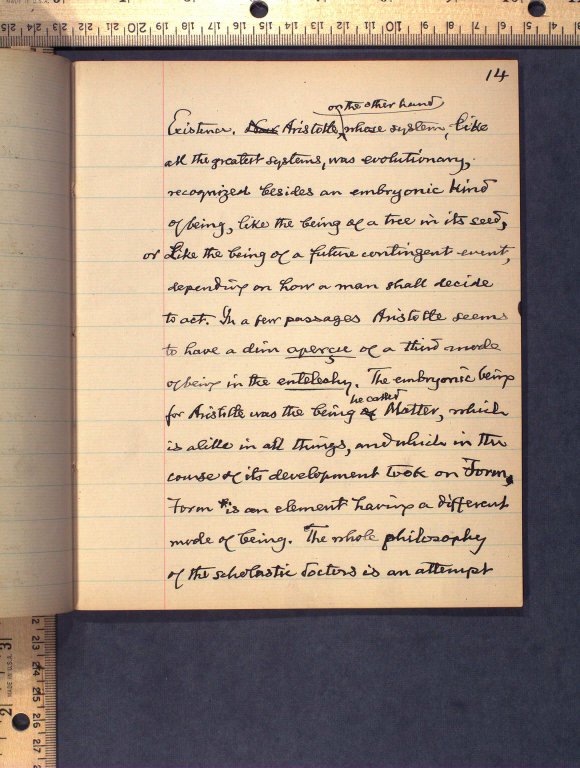 14
on the other hand
Existence. Aristotle, whose system, like
all the greatest systems, was evolutionary,
recognized besides an embryonic kind
of being, like the being of a tree in its seed,
or Like the being of a future contingent event,
depending on how a man shall decide
to act. In a few passages Aristotle seems
to have a dim aperçue of a third mode
of being in the entelechy. The embryonic being
he called
for Aristotle was the being of Matter, which
is alike in all things, and which in the
course of its development took on Form.
Form is an element having a different
mode of being. The whole philosophy
of the scholastic doctors is an attempt